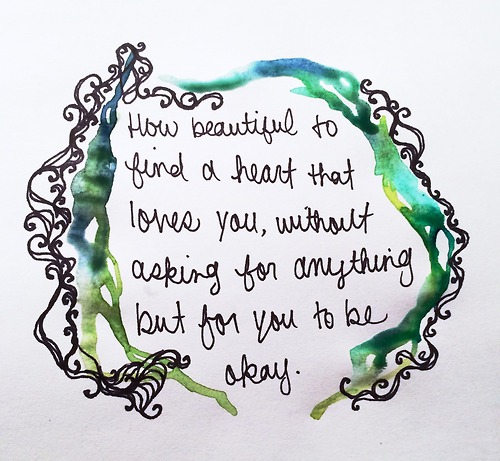 How beautiful to
find a heart that
loves you, without
asking for anything
but for you to be
okay.